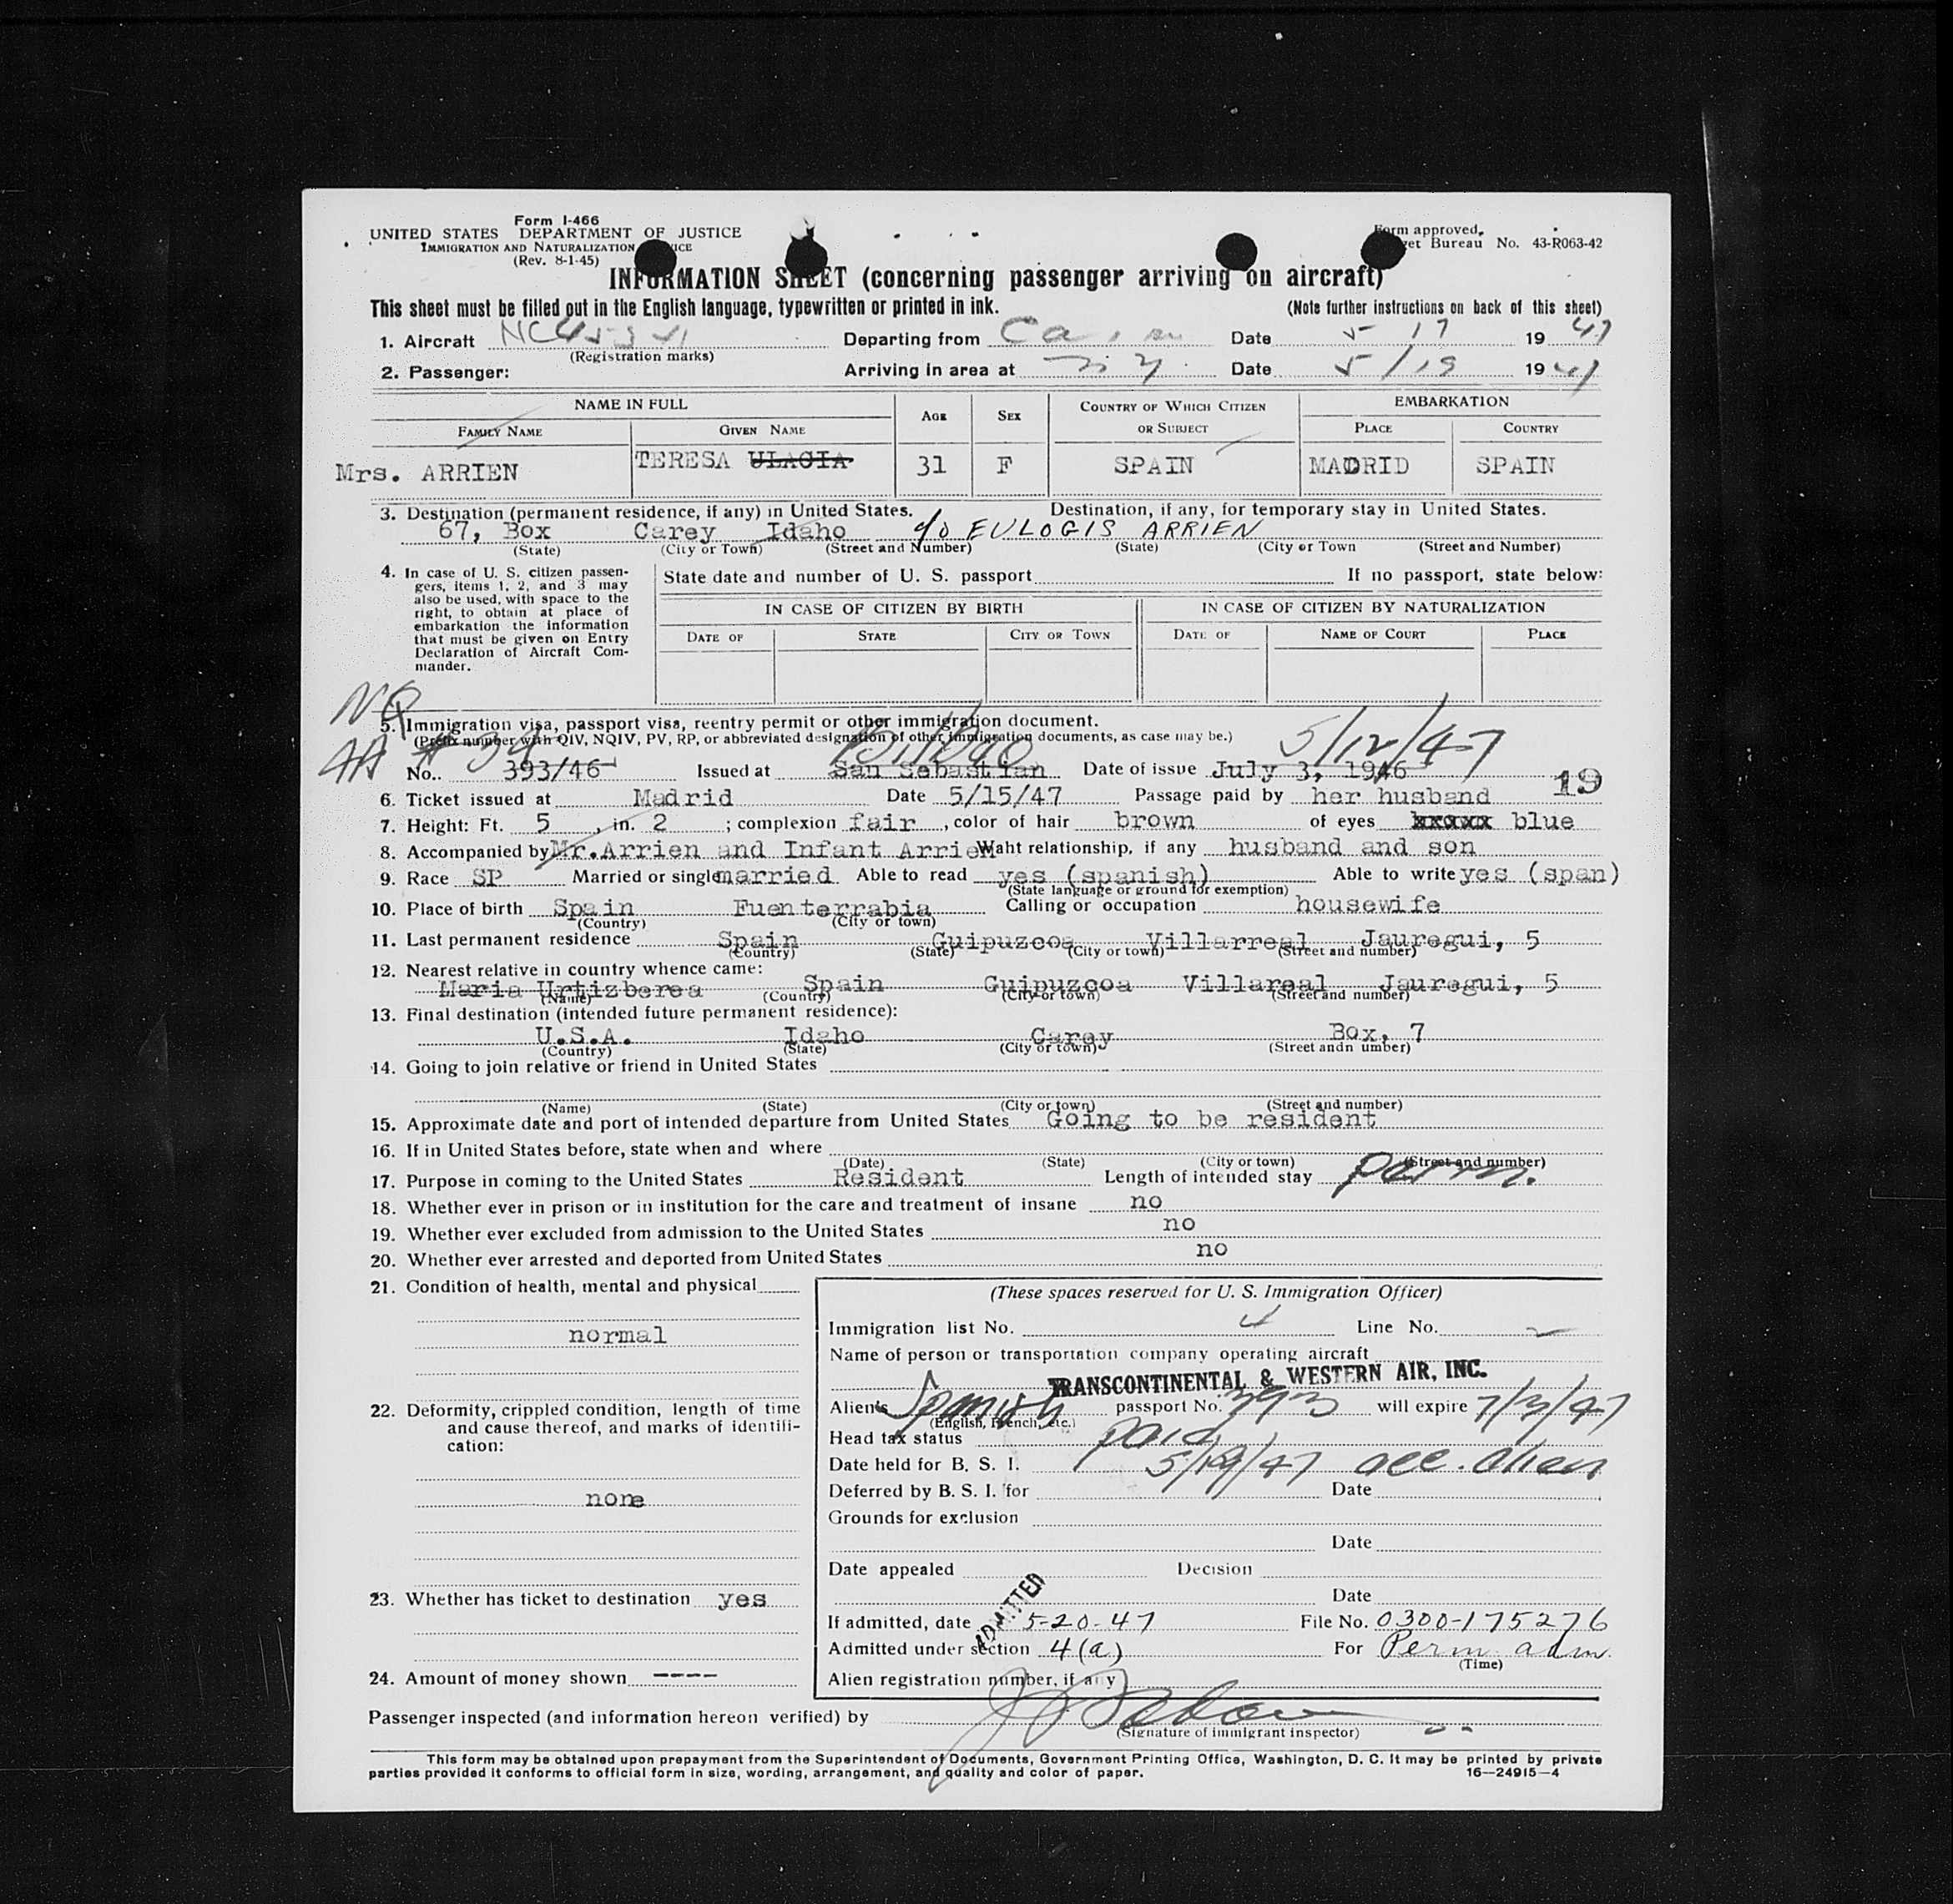 Form I-466
UNITED STATES DEPARTMENT OF JUSTICE
IMMIGRATION AND NATURALIZATION
(Rev. 8-1-45)
Form approved.
Bureau No. 43-R063-42
INFORMATION SHEET (concerning passenger arriving on aircraft)
This sheet must be filled out in the English language, typewritten or printed in ink. (Note further instructions on back of this sheet)
1. Aircraft Departing from Date 5 17 19 47
(Registration marks)
2. Passenger: Arriving in area at Date 5/19 19 47
NAME IN FULL AGE SEX COUNTRY OF WHICH CITIZEN OR SUBJECT EMBARKATION
FAMILY NAME GIVEN NAME PLACE COUNTRY
Mrs. ARRIEN TERESA ULACIA 31 F SPAIN MADRID SPAIN
3. Destination (permanent residence, if any) in United States. Destination, if any, for temporary stay in United States.
67, Box Carey Idaho c/o EULOGIS ARRIEN
(State) (City or Town) (Street and Number) (State) (City or Town (Street and Number)
4. In case of U. S. citizen passen-
gers, items 1, 2, and 3 may
also be used, with space to the
right, to obtain at place of
embarkation the information
that must be given on Entry
Declaration of Aircraft Com-
mander.
State date and number of U. S. passport If no passport, state below:
IN CASE OF CITIZEN BY BIRTH IN CASE OF CITIZEN BY NATURALIZATION
DATE OF STATE CITY OR TOWN DATE OF NAME OF COURT PLACE
NQ
5. Immigration visa, passport visa, reentry permit or other immigration document.
(Prefix number with QIV, NQIV, PV, RP, or abbreviated designation of other immigration documents, as case may be.)
Bilbao 5/12/47
No. 393/46 Issued at San Sebastian Date of issue July 3, 1946 19
6. Ticket issued at Madrid Date 5/15/47 Passage paid by her husband
7. Height: Ft. 5, in. 2; complexion fair, color of hair brown of eyes xxxxx blue
8. Accompanied by Mr.Arrien and Infant Arrien Waht relationship, if any husband and son
9. Race SP Married or single married Able to read yes (spanish) Able to write yes (span)
(State language or ground for exemption)
10. Place of birth Spain Fuenterrabia Calling or occupation housewife
(Country) (City or town)
11. Last permanent residence Spain Guipuzcoa Villarreal Jauregui, 5
(Country) (State) (City or town) (Street and number)
12. Nearest relative in country whence came:
Maria Urtizberea Spain Guipuzcoa Villareal Jauregui, 5
(Name) (Country) (City or town) (Street and number)
13. Final destination (intended future permanent residence):
U.S.A. Idaho Carey Box, 7
(Country) (State) (City or town) (Street andn umber)
14. Going to join relative or friend in United States
(Name) (State) (City or town) (Street and number)
15. Approximate date and port of intended departure from United States Going to be resident
16. If in United States before, state when and where
(Date) (State) (City or town) (Street and number)
17. Purpose in coming to the United States Resident Length of intended stay perm.
18. Whether ever in prison or in institution for the care and treatment of insane no
19. Whether ever excluded from admission to the United States no
20. Whether ever arrested and deported from United States no
21. Condition of health, mental and physical
normal
22. Deformity, crippled condition, length of time
and cause thereof, and marks of identifi-
cation:
none
23. Whether has ticket to destination yes
24. Amount of money shown ----
(These spaces reserved for U. S. Immigration Officer)
Immigration list No. 4 Line No.
Name of person or transportation company operating aircraft
TRANSCONTINENTAL & WESTERN AIR, INC.
Alien's Spanish passport No. 393 will expire 7/3/47
(English, French, etc.)
Head tax status paid
Date held for B. S. I. 5/19/47 acc. alien
Deferred by B. S. I. for Date
Grounds for exclusion
Date
Date appealed Decision
Date
ADMITTED
If admitted, date 5-20-47 File No. 0300-175276
Admitted under section 4(a) For Perm adm.
(Time)
Alien registration number, if any
Passenger inspected (and information hereon verified) by
(Signature of immigrant inspector)
This form may be obtained upon prepayment from the Superintendent of Documents, Government Printing Office, Washington, D. C. It may be printed by private
parties provided it conforms to official form in size, wording, arrangement, and quality and color of paper. 16—24915-4